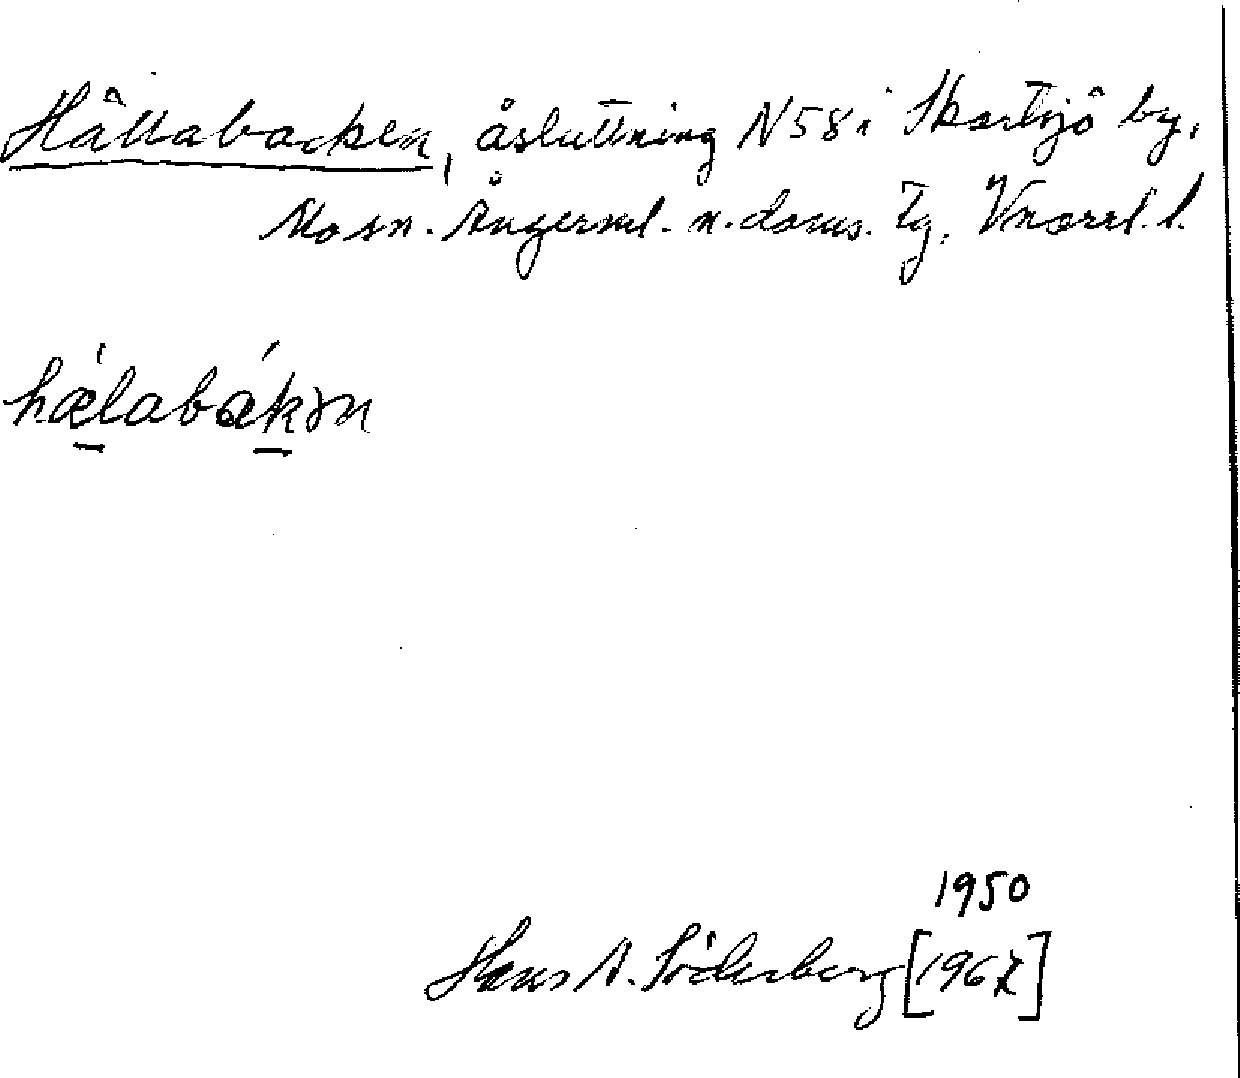 Hällabacken, åsluttning N58 i Skortsjö by,
Mo sn. Ångerml. n. doms. Tg. Vnorrl. l.
hælabakən
1950
Hans A. Söderberg [1967]